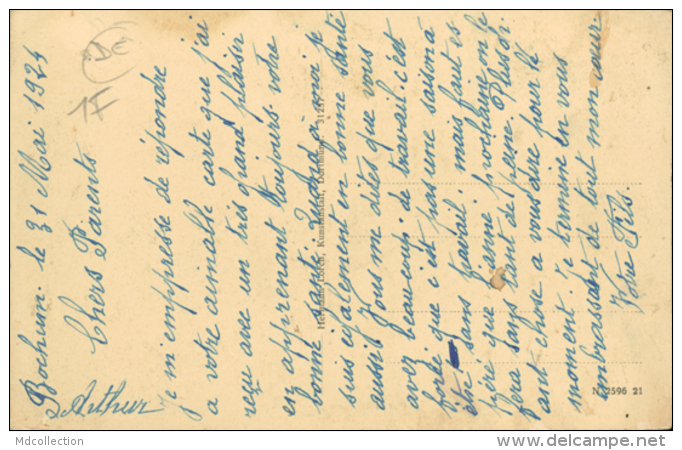 Bochum. le 31 Mai 1924
Chers Parents
Je m'empresse de répondre
a votre aimable carte que j'ai
reçu avec un très grand plaisir
en apprenant toujours votre
bonne santé. Quand à moi je
suis également en bonne santé
aussi. Vous me dites que vous
avez beaucoup de travail. c'est
forcé que c'est pas une saison à
être sans travail. mais faut es
père que l'année prochaine on le
fera sans tant de peine. Plus
tant chose a vous dire pour le
moment. Je termine en vous
embrassant de tout mon cœur.
Votre Fils.
Arthur
Kunstanstalt, Dortmund.
N 2596 21
Mdcollection
www.delcampe.net